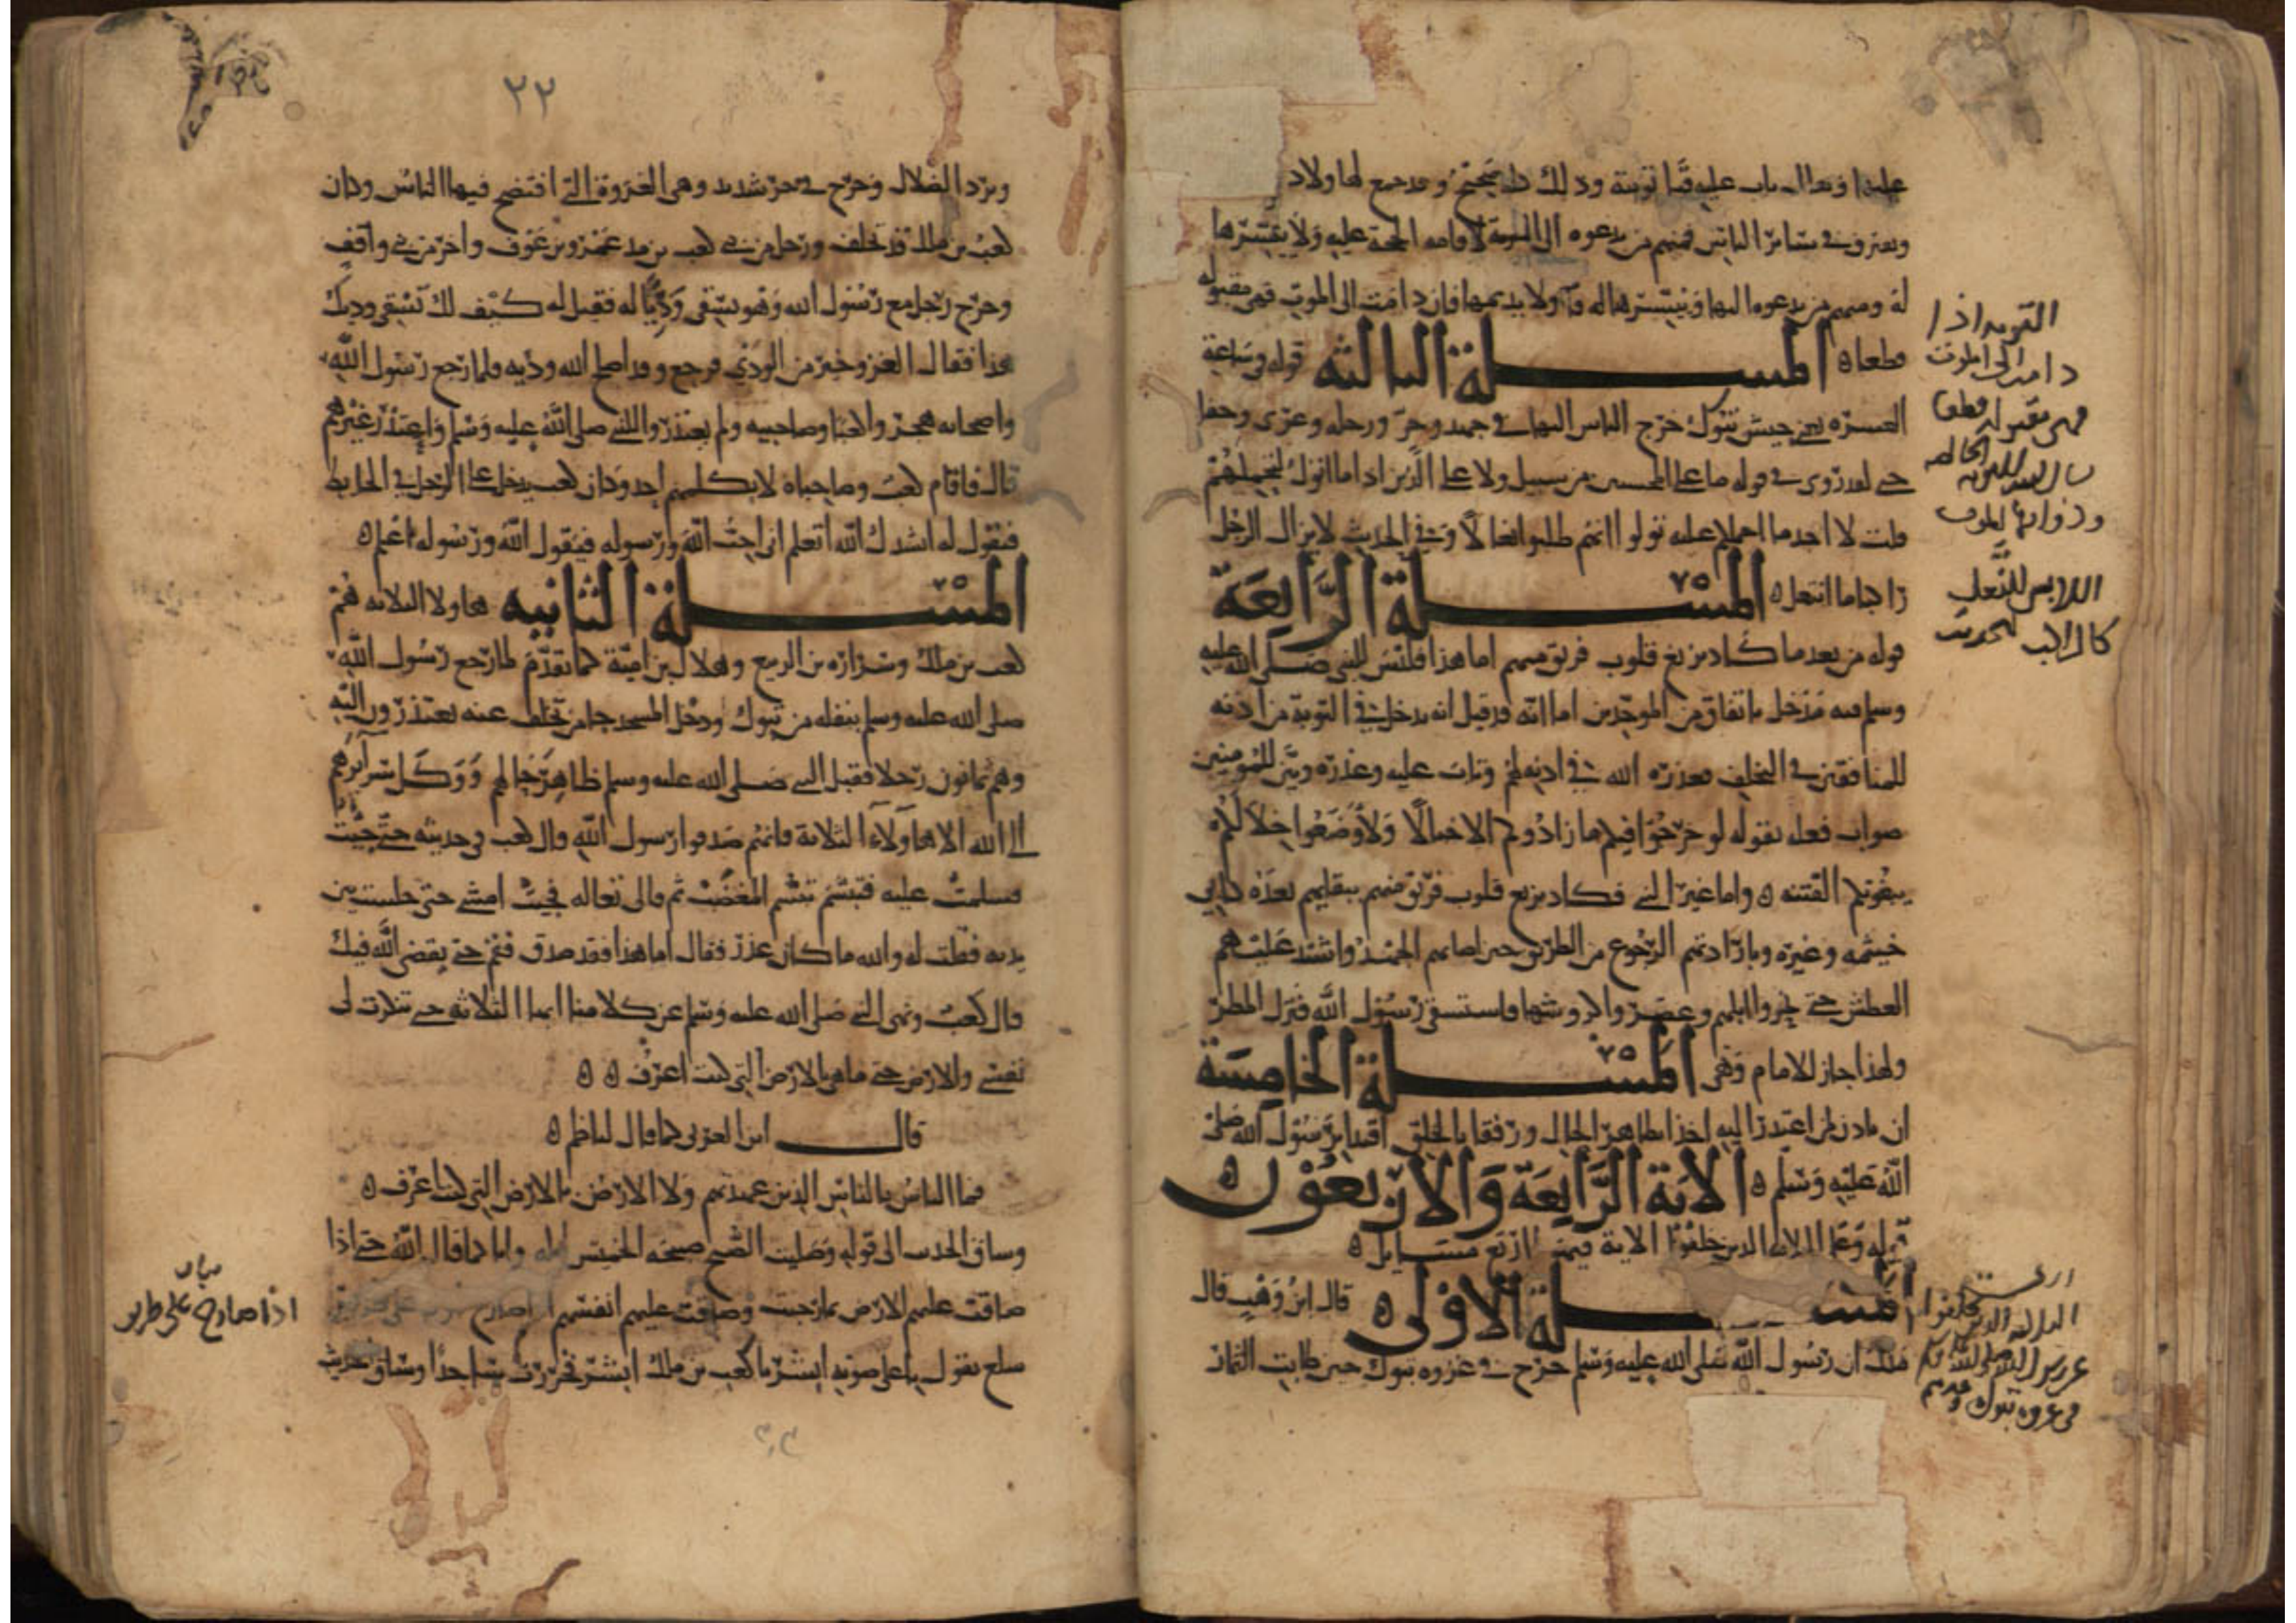 علينا وقال تاب عليه قبل توبته وذلك كله صحيح وقد جمع لها ولاد
ونعتزون في سائر الناس فمنهم من يدعوه الى التوبة لاقامه الحجة عليه ولا ييسرها
له ومنهم من يدعوه اليها وييسرها له ولا يديمها فان دامت الى الموت فهي مقبوله
قطعا ه المسلة الثالثه قوله في ساعة
العسرة يعني جيش تبوك خرج الناس اليها في جهد وحر ورجله وعرى وحفا
حتى لقد روى في قوله ما على المحسنين من سبيل ولا على الذين اذا ما اتوك لتحملهم
قلت لا اجد ما احملكم عليه تولوا انهم طلبوا نعالا وفي الحديث لا يزال الرجل
راكبا ما انتعل ه المسلة الرابعة
قوله من بعد ما كاد يزيغ قلوب فريق منهم اما هذا فليس للنبي صلى الله عليه
وسلم فيه مدخل باتفاق من الموحدين اما انه قد قيل انه يدخل في التوبة من اذنه
للمنافقين في التخلف فعذره الله في اذنه لهم وتاب عليه وعذره وبين للمؤمنين
صواب فعله بقوله لو خرجوا فيكم ما زادوكم الا خبالا ولأوضعوا خلالكم
يبغونكم الفتنه ه واما غير النبي فكاد يزيغ قلوب فريق منهم ببقايهم بعده كابي
خيثمه وغيره وبارادتهم الرجوع من الطريق حين اصابهم الجهد واشتد عليهم
العطش حتى نحروا ابلهم وعصروا كروشها فاستسقى رسول الله فنزل المطر
ولهذا جاز للامام وهي المسلة الخامسة
ان ياذن لمن اعتذر اليه اخذا بظاهر الحال ورفقا بالخلق اقتدا برسول الله صلى
الله عليه وسلم ه الاية الرابعة والاربعون
قوله وعلى الثلاثة الذين خلفوا الاية فيها اربع مسايل ه
المسلة الاولى ه قال ابن وهب قال
ملك ان رسول الله صلى الله عليه وسلم خرج في غزوه تبوك حين طابت الثمار
التوبه اذا
دامت الى الموت
فهي مقبوله قطعا
اللابس للنعل
كالراكب لحديث
الثلاثه الذين خلفوا
في غزوه تبوك
٢٢
وبرد الظلال وخرج في حر شديد وهي الغزوة التي افتضح فيها الناس وكان
كعب بن ملك قد تخلف ورجل من بني كعب بن عمرو بن عوف واخر من بني واقف
وخرج رجل مع رسول الله وهو يسقى وديا له فقيل له كيف لك تسقي وديك
هذا فقال الغزو خير من الودي فرجع وقد اصلح الله وديه فلما رجع رسول الله
واصحابه هجروا كعبا وصاحبيه ولم يعتذروا للنبي صلى الله عليه وسلم واعتذر غيرهم
قال فاقام كعب وصاحباه لا يكلمهم احد وكان كعب يدخل على الرجل في الحايط
فيقول له انشدك الله اتعلم اني احب الله ورسوله فيقول الله ورسوله اعلم ه
المسلة الثانيه هاولا الثلاثه هم
كعب بن ملك ومراره بن الربيع وهلال بن امية كما تقدم لما رجع رسول الله
صلى الله عليه وسلم بنفله من تبوك ودخل المسجد جا من تخلف عنه يعتذرون اليه
وهم ثمانون رجلا فقبل النبي صلى الله عليه وسلم ظاهر حالهم ووكل سرآئرهم
الى الله الا هاولآء الثلاثة فانهم صدقوا رسول الله قال كعب في حديثه حتى جيت
فسلمت عليه فتبسم تبسم المغضب ثم قال لي تعاله فجيت امشي حتى جلست بين
يديه فقلت له والله ما كان عذر فقال اما هذا فقد صدق فقم حتى يقضي الله فيك
قال كعب ونهى النبي صلى الله عليه وسلم عن كلامنا ايها الثلاثه حتى تنكرت لي
نفسي والارض حتى ما هي بالارض التي كنت اعرف ه ه
قال ابن العربي كما قال لناظم ه
فما الناس بالناس الذين عهدتهم ولا الارض بالارض التي كنت اعرف ه
وساق الحديث الى قوله وصليت الصبح صبيحة الخمسين ليله وانا كما قال الله حتى اذا
ضاقت عليهم الارض بما رحبت وضاقت عليهم انفسهم
سلع يقول باعلى صوته ابشر يا كعب بن ملك ابشر فخررت ساجدا وساق حديث